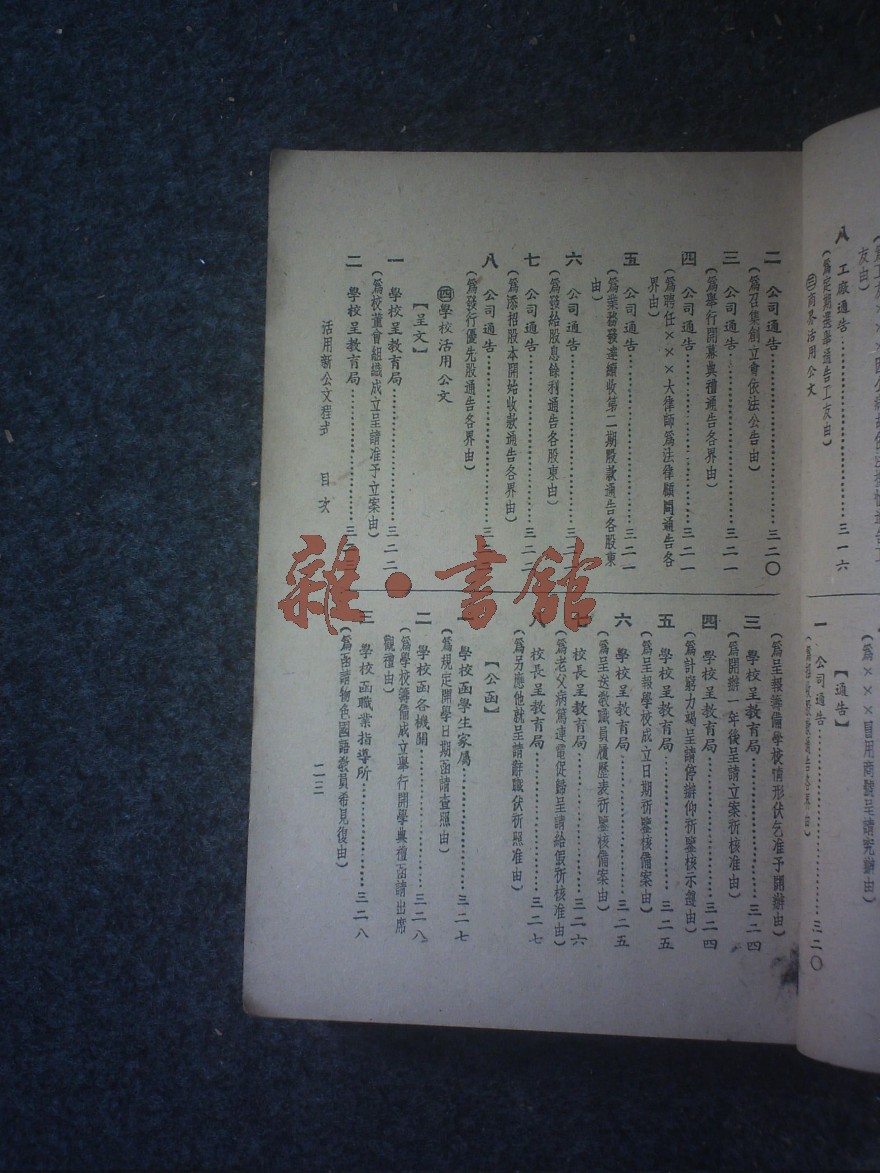 八 工廠通告……三一六
(為定期選舉通告工友由)
㊂商界活用公文
×××冒用商號呈請究辦由)
【通告】
一 公司通告……三二〇
二 公司通告……三二〇
(為召集創立會依法公告由)
三 公司通告……三二一
(為舉行開幕典禮通告各界由)
四 公司通告……三二一
(為聘任×××大律師為法律顧問通告各
界由)
五 公司通告……三二一
(為業務發達續收第二期股款通告各股東
由)
六 公司通告……三二
(為發給股息餘利通告各股東由)
七 公司通告……三二二
(為添招股本開始收款通告各界由)
八 公司通告……三二
(為發行優先股通告各界由)
㊃學校活用公文
【呈文】
一 學校呈教育局……三二二
(為校董會組織成立呈請准予立案由)
二 學校呈教育局……三二
(為呈報籌備學校情形伏乞准予開辦由)
三 學校呈教育局……三二四
(為開辦一年後呈請立案祈核准由)
四 學校呈教育局……三二四
(為計窮力竭呈請停辦仰祈鑒核示遵由)
五 學校呈教育局……三二五
(為呈報學校成立日期祈鑒核備案由)
六 學校呈教育局……三二五
(為呈送教職員履歷表祈鑒核備案由)
七 校長呈教育局……三二六
(為老父病篤連電促歸呈請給假祈核准由)
八 校長呈教育局……三二七
(為另應他就呈請辭職伏祈照准由)
【公函】
一 學校函學生家屬……三二七
(為規定開學日期函請查照由)
二 學校函各機關……三二八
(為學校籌備成立舉行開學典禮函請出席
觀禮由)
三 學校函職業指導所……三二八
(為函請物色國語教員希見復由)
活用新公文程式 目次
二三
雜·書館